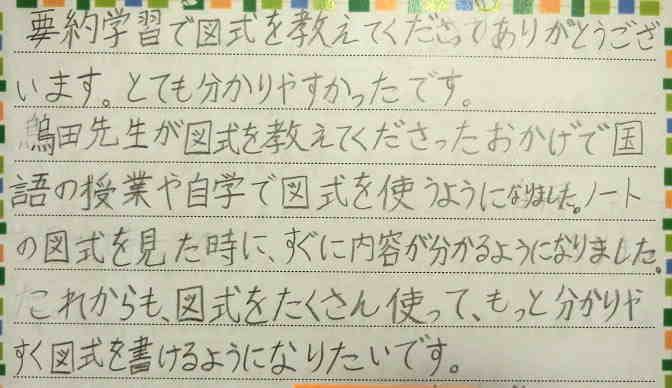 要約学習で図式を教えてくださってありがとうござ
います。とても分かりやすかったです。
鳥田先生が図式を教えてくださったおかげで国
語の授業や自学で図式を使うようになりました。ノート
の図式を見た時に、すぐに内容が分かるようになりました。
これからも、図式をたくさん使って、もっと分かりや
すく図式を書けるようになりたいです。